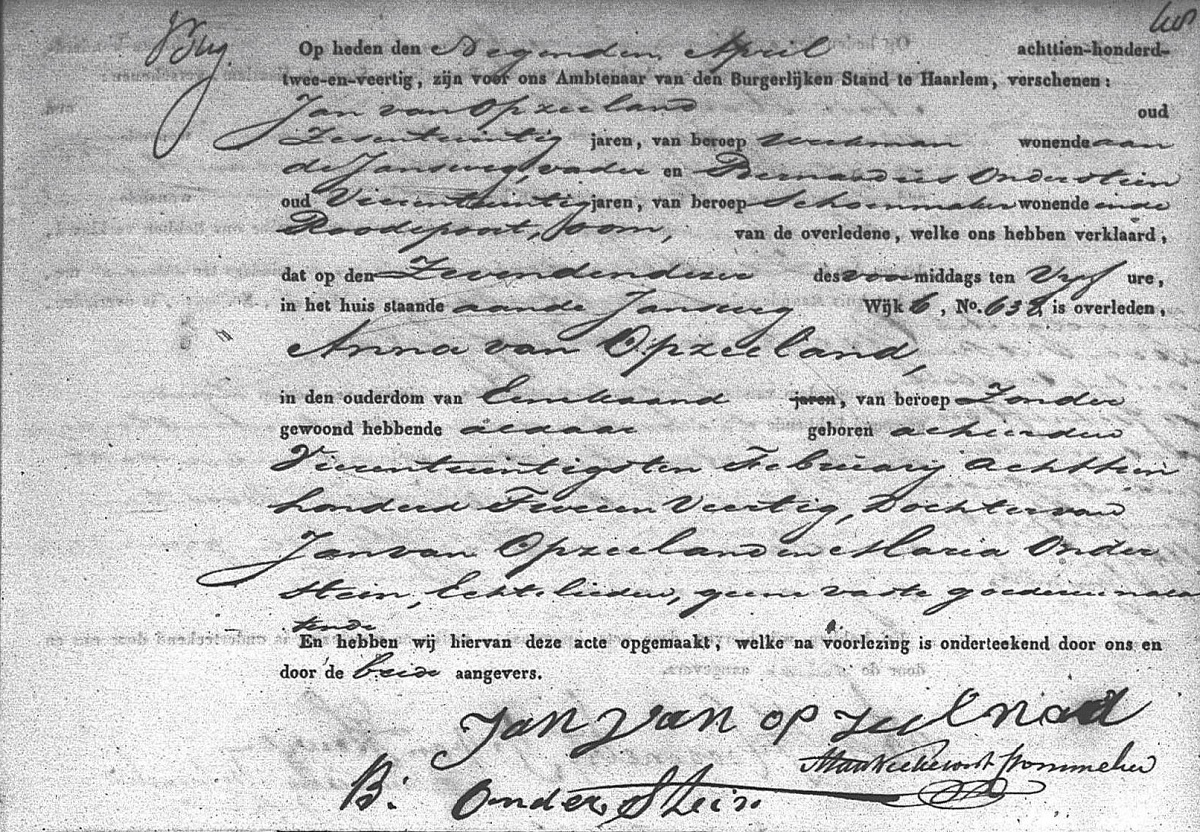 Op heden den Negenden April achttien-honderd-
twee-en-veertig, zijn voor ons Ambtenaar van den Burgerlijken Stand te Haarlem, verschenen:
Jan van Opzeeland oud
Zesentwintig jaren, van beroep Werkman wonende aan
de Jansweg, vader en Bernardus Onderstein
oud Vierentwintig jaren, van beroep Schoenmaker wonende inde
Roodepoort, oom, van de overledene, welke ons hebben verklaard,
dat op den Zevenden dezer des voormiddags ten Vyf ure,
in het huis staande aande Jansweg Wijk 6, No. 638, is overleden,
Anna van Opzeeland,
in den ouderdom van Een maand jaren, van beroep Zonder
gewoond hebbende aldaar geboren alhier den
Vierentwintigsten February achttien
honderd Tween Veertig, Dochter van
Jan van Opzeeland en Maria Onder
stein, Echtelieden, geene vaste goederen nala
tende
En hebben wij hiervan deze acte opgemaakt, welke na voorlezing is onderteekend door ons en
door de beide aangevers.
Jan van op zeelnad
B: Onder Stein